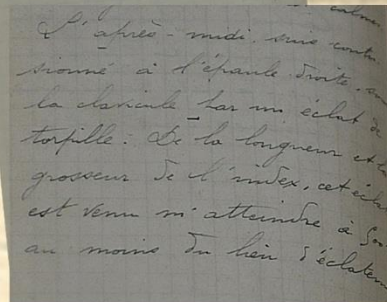 calme
L'après-midi suis contu
sionné à l'épaule droite, sur
la clavicule par un éclat de
torpille. De la longueur et la
grosseur de l'index, cet écla
est venu m'atteindre à
au moins du lieu d'éclatem